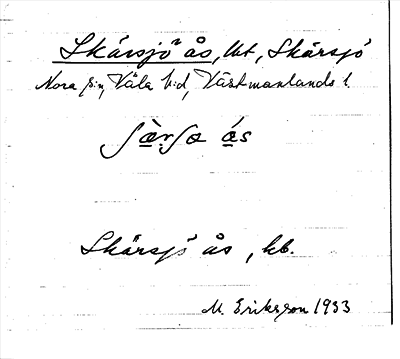 Skärsjö ås, lht, Skärsjö
Nora sn, Våla hd, Västmanlands l.
ʃæ̀rʃɷ ás
Skärsjö ås, hb.
M. Eriksson 1933